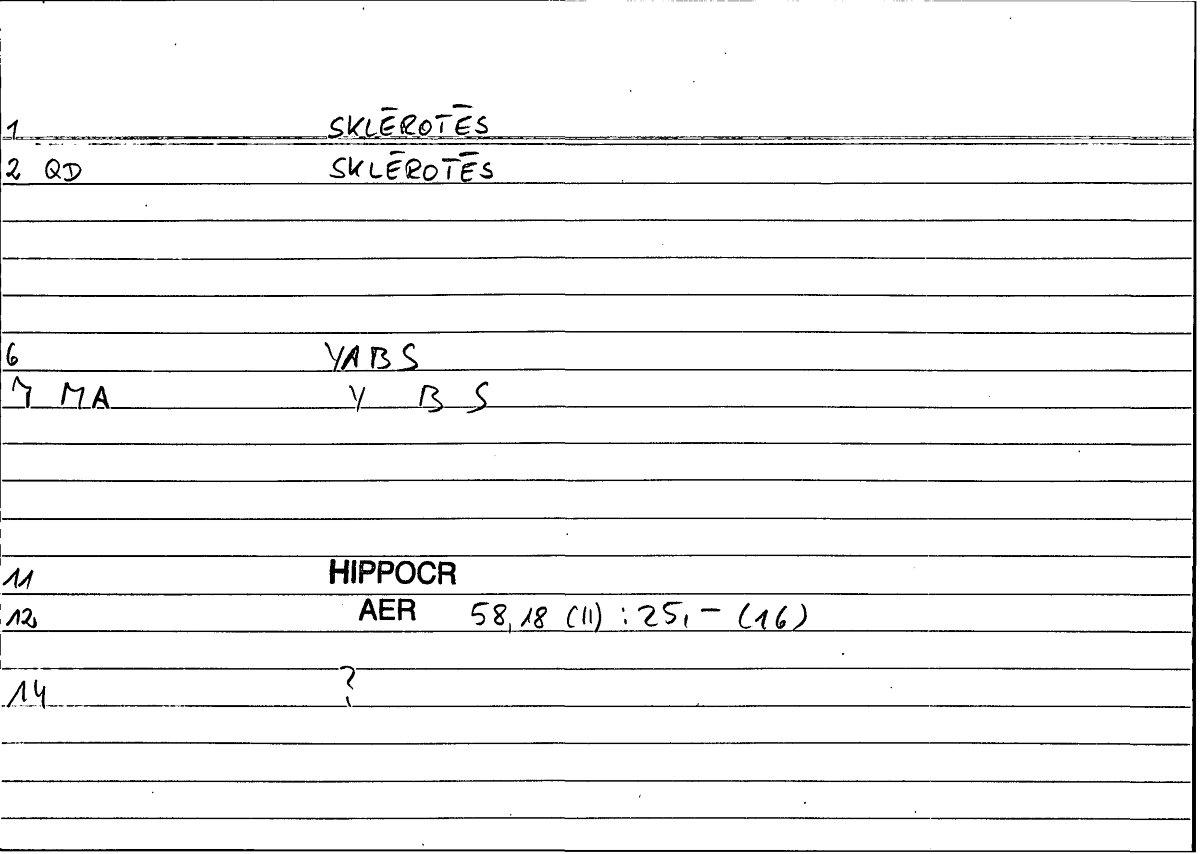 1 SKLĒROTĒS
2 QD SKLĒROTĒS
6 YABS
7 MA Y B S
11 HIPPOCR
12 AER 58,18 (11) : 25,- (16)
14 ?